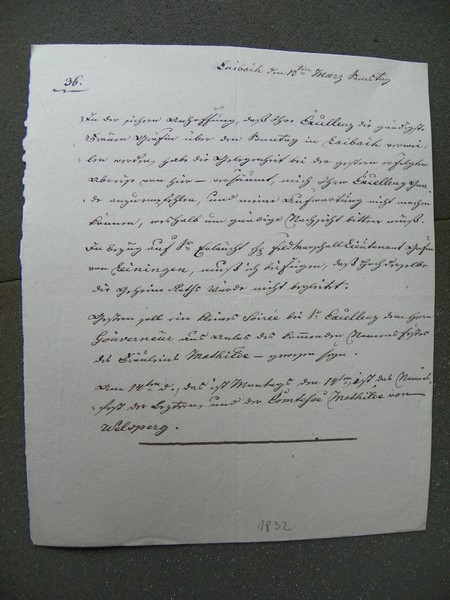 36.
Laibach den 12ten März Samstag
In der sichern Anhoffnung, daß Ihre Excellenz die gnädigste
Frau Gräfin über den Sonntag in Laibach verwei-
len werden, hab die Gelegenheit bei der gestern erfolgten
Abreise von hier – versäumt, mich Ihrer Excellenz Gna-
de anzuempfehlen, und meine Aufwartung nicht machen
können, weshalb um gnädige Nachsicht bitten muß.
In bezug auf Se Erlaucht H. Feldmarschall Lieutenant Grafen
von Leiningen, muß ich beifügen, daß Hochderselbe
die Geheim Raths Würde nicht begleitet.
Gestern soll ein kleines Soirée bei Sr Excellenz dem Herrn
Gouverneur aus Anlaß des kommenden Namensfestes
des Fräuleins Mathilde – gewesen seyn.
Am 14ten d., das ist Montags den 14ten ist das Namens-
fest der Letztern, und der Comtesse Mathilde von
Welsperg.
1832